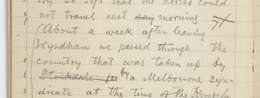 so soft that our horses could
not travel next day morning
About a week after leaving
Wyndham we passed through the
country that was taken up by
Stockdale for by a Melbourne Syn-
dicate at the time of the Kimberley